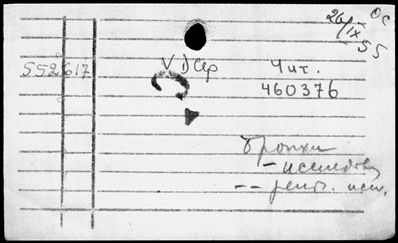 26/IX 55 ОС
552617 V Дср Чит.
460376
бронхи
- исследов.
-- рент. исп.